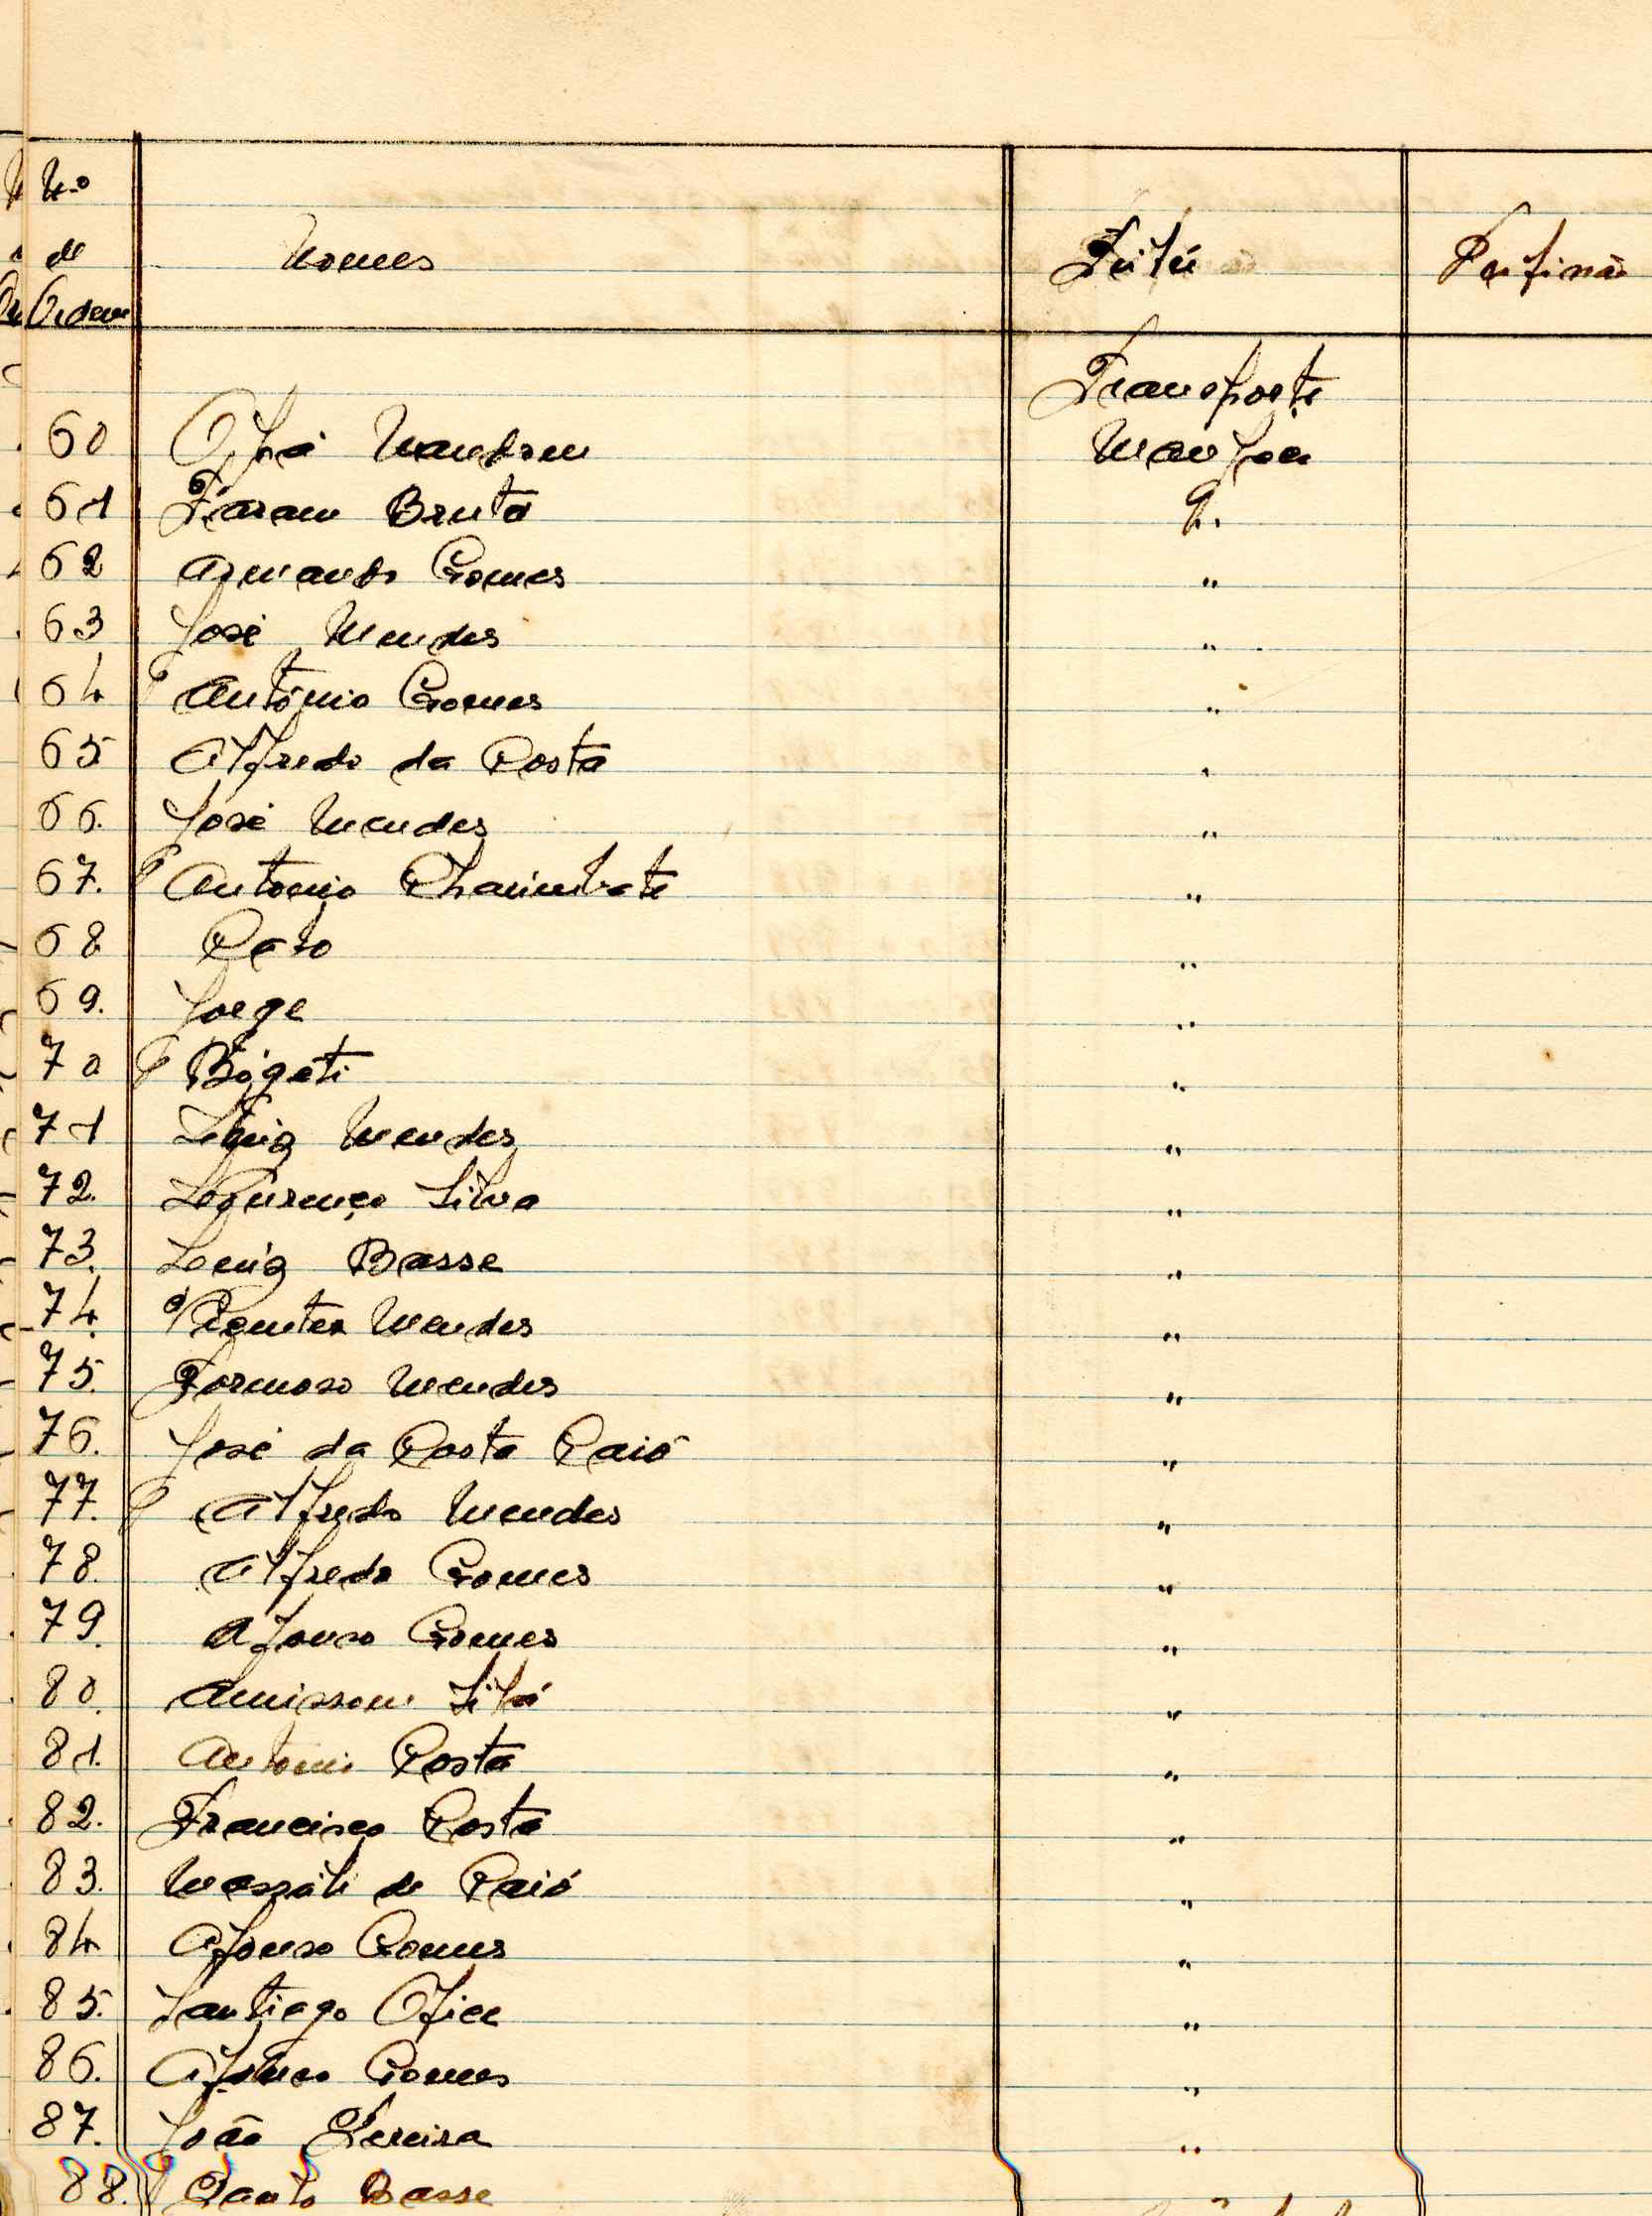 N.º
de
Ordem
Nomes
Transporte
60
61 Faram Bruto "
62 Armando Gomes "
63 José Mendes "
64 António Gomes "
65 Alfredo da Costa "
66. José Mendes "
67. Antonio "
68 "
69. Jorge "
70 Bógati "
71 Luiz Mendes "
72. Lourenço Silva "
73. Luiz Basse "
74. Mendes "
75. Formoso Mendes "
76. José da Costa Caió "
77. Alfredo Mendes "
78. Alfredo Gomes "
79. Afonso Gomes "
80. "
81. Antonio Costa "
82. Francisco Costa "
83. de Caió "
84 Afonso Gomes "
85. Santiago "
86. Afonso Gomes "
87. João Pereira "
88. Basse